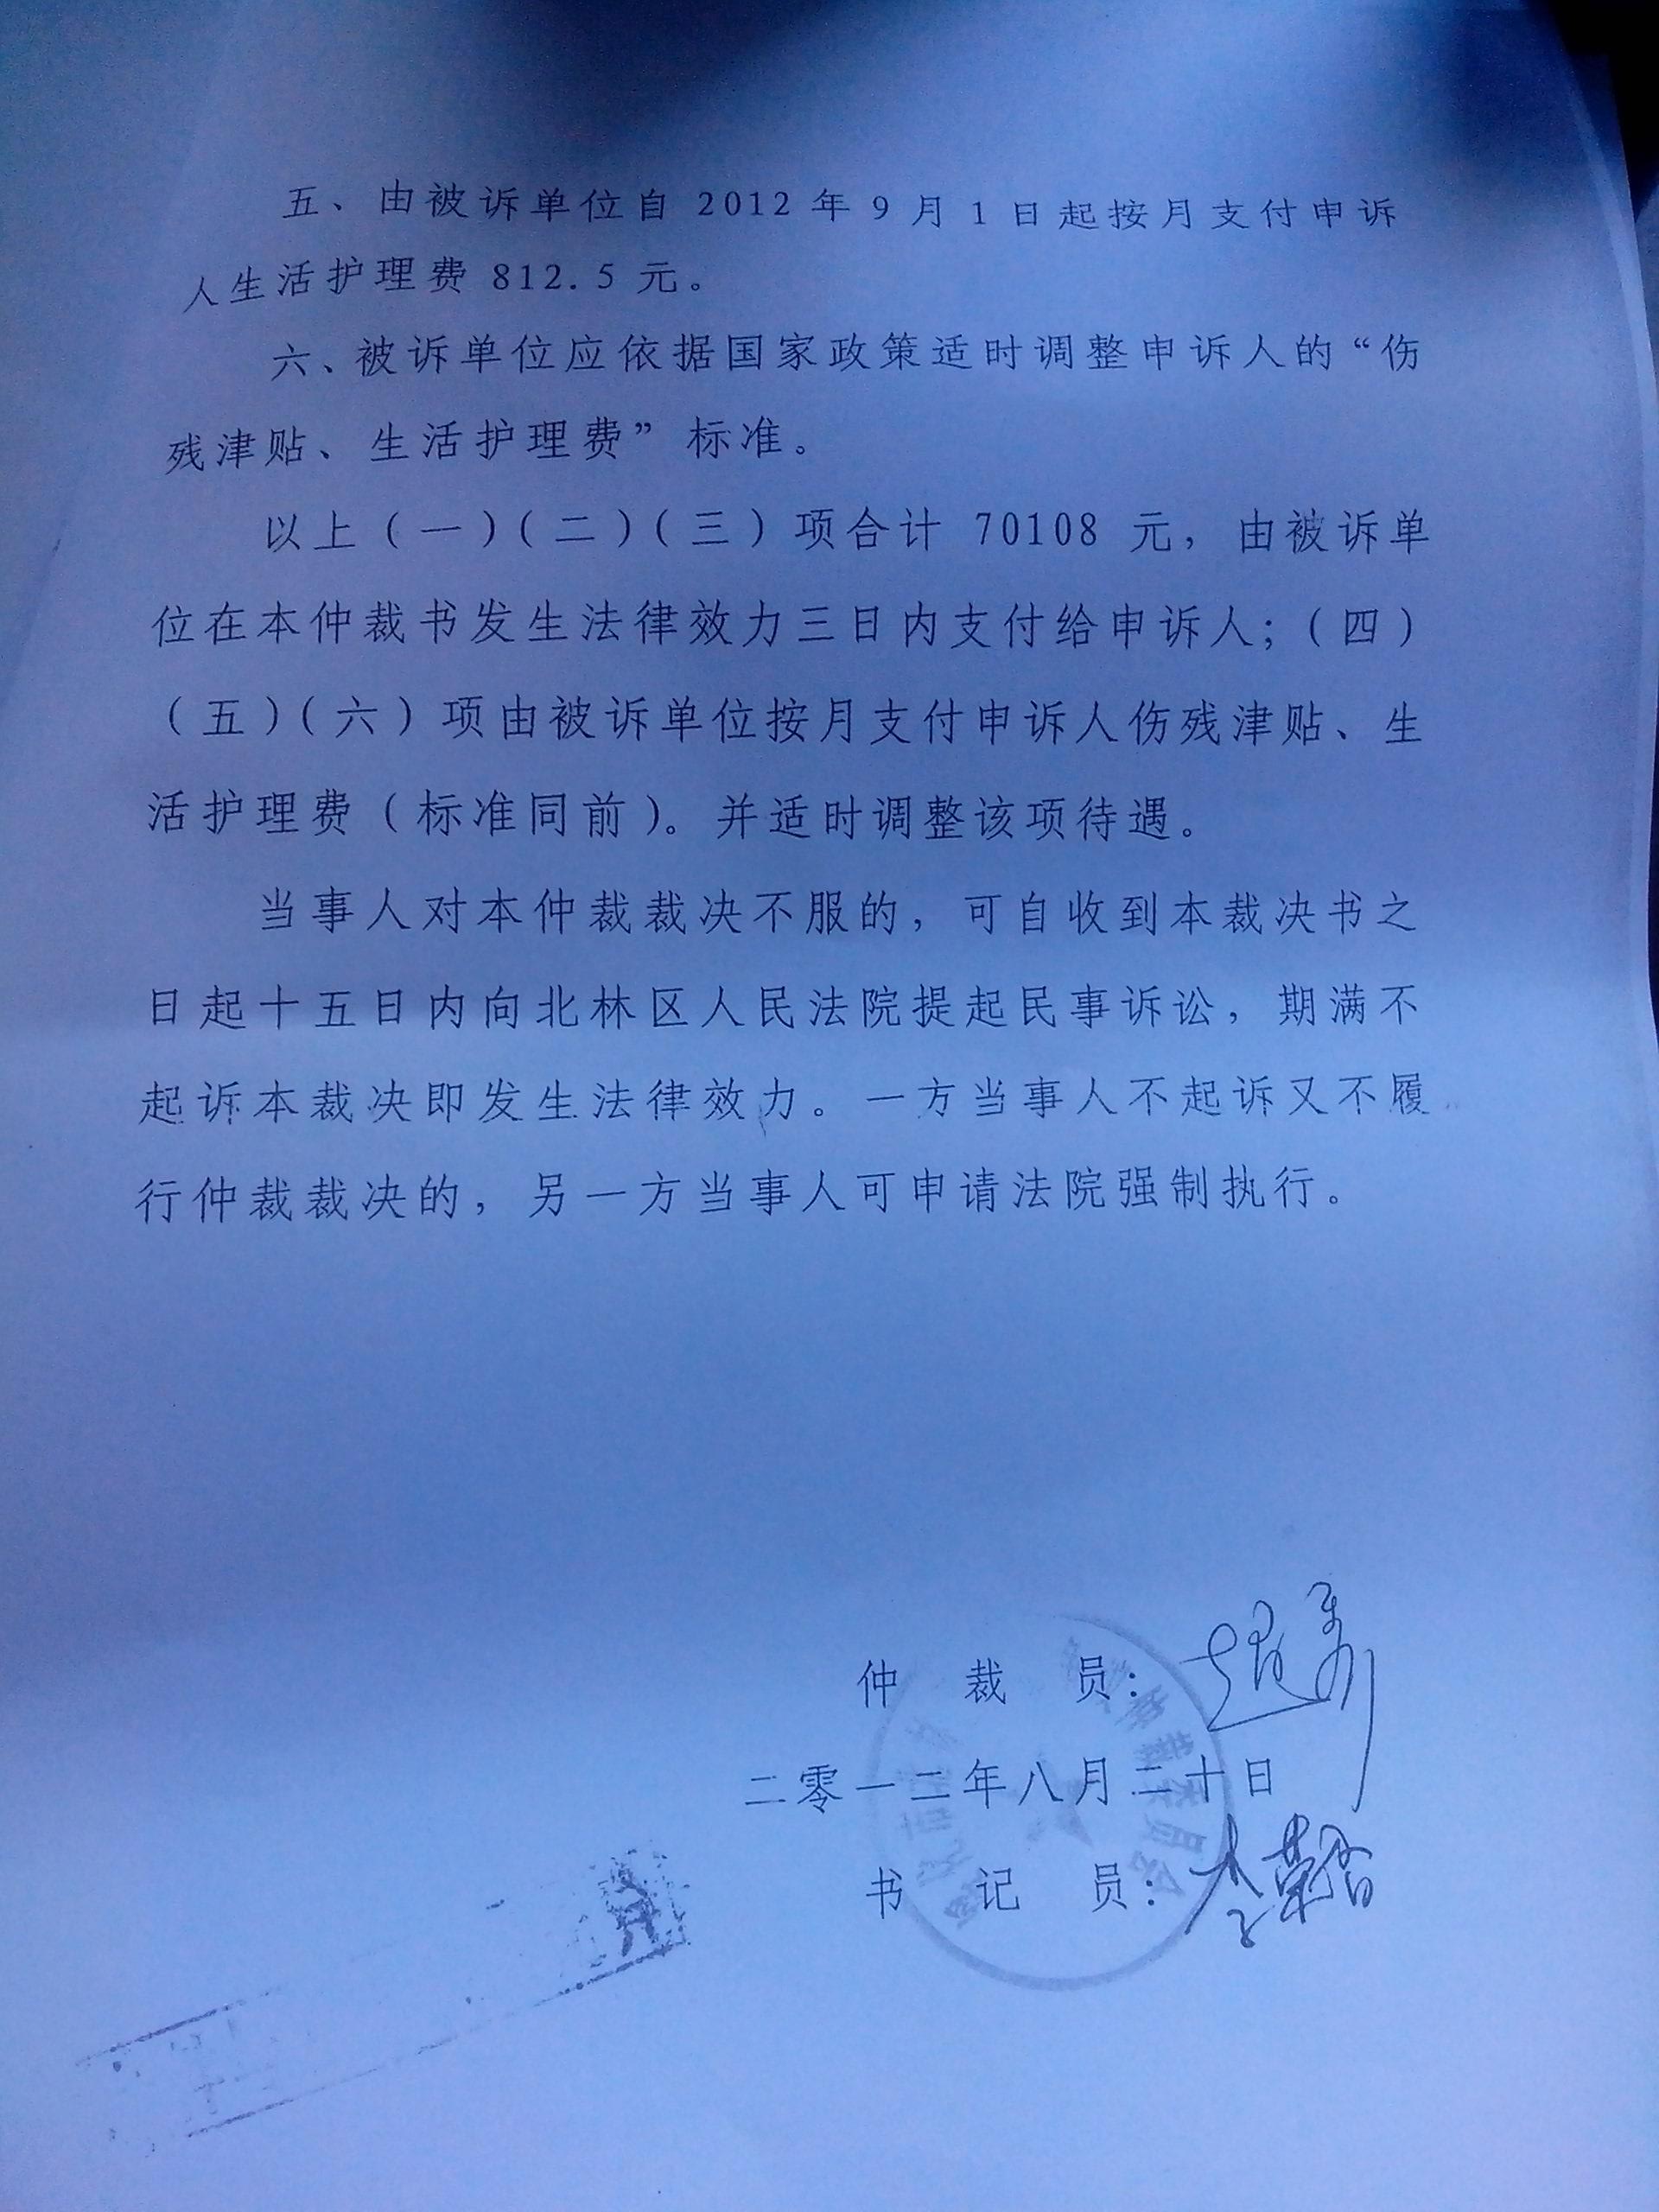 五、由被诉单位自 2012 年 9 月 1 日起按月支付申诉
人生活护理费 812.5 元。
六、被诉单位应依据国家政策适时调整申诉人的“伤
残津贴、生活护理费”标准。
以上(一)(二)(三)项合计 70108 元，由被诉单
位在本仲裁书发生法律效力三日内支付给申诉人；(四)
(五)(六)项由被诉单位按月支付申诉人伤残津贴、生
活护理费(标准同前)。并适时调整该项待遇。
当事人对本仲裁裁决不服的，可自收到本裁决书之
日起十五日内向北林区人民法院提起民事诉讼，期满不
起诉本裁决即发生法律效力。一方当事人不起诉又不履
行仲裁裁决的，另一方当事人可申请法院强制执行。
仲 裁 员：
二零一二年八月二十日
书 记 员：